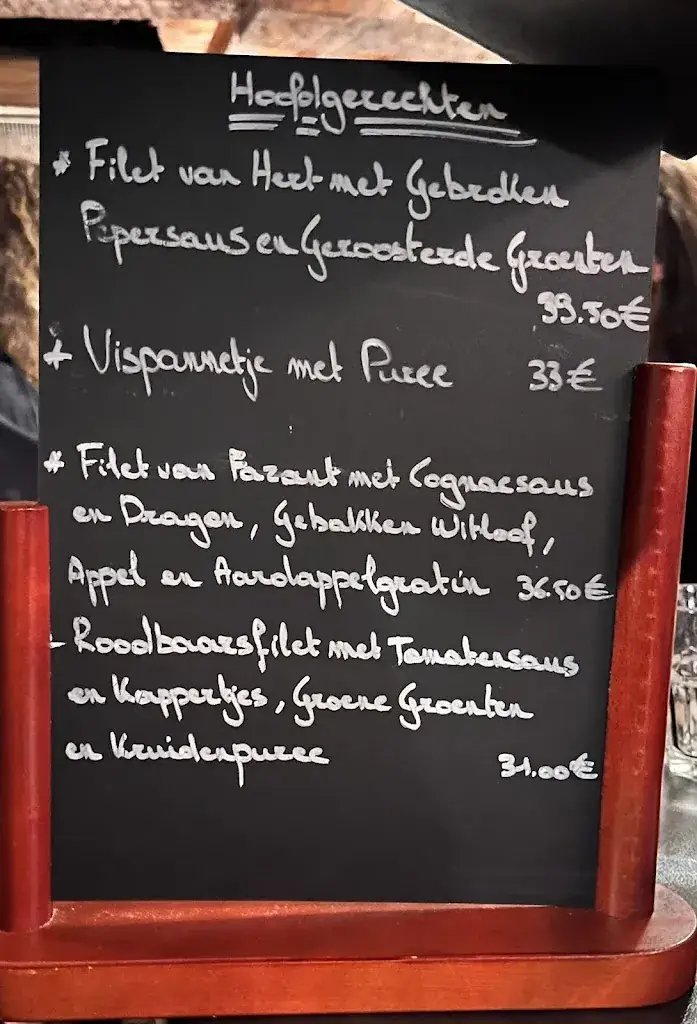 Hoofdgerechten
* Filet van Hert met Gebroken
Pepersaus en Geroosterde Groenten
39.50€
* Vispannetje met Puree 33€
* Filet van Fazant met Cognacsaus
en Dragon, Gebakken Witloof,
Appel en Aardappelgratin 36.50€
- Roodbaarsfilet met Tomatensaus
en Kappertjes, Groene Groenten
en Kruidenpuree 31.00€